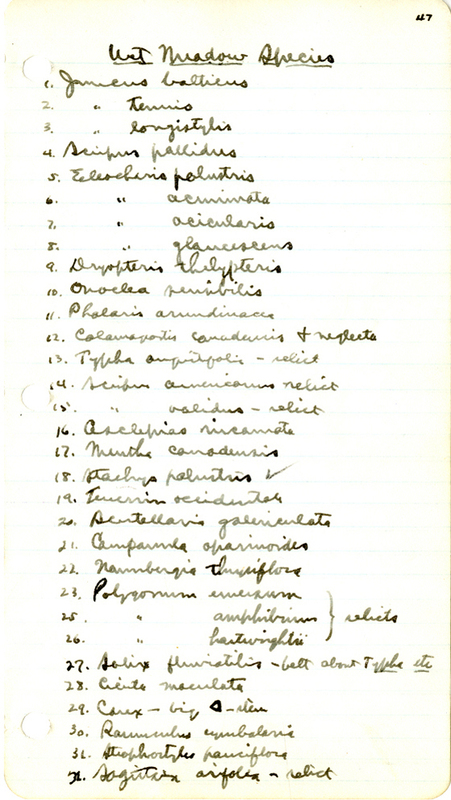 47
Wet Meadow Species
1. Juncus balticus
2. " tenuis
3. " longistylis
4. Scirpus pallidus
5. Eleocharis palustris
6. " acuminata
7. " acicularis
8. " glaucescens
9. Dryopteris thelypteris
10. Onoclea sensibilis
11. Phalaris arundinacea
12. Calamagrostis canadensis + neglecta
13. Typha angustifolia - relict
14. Scirpus americanus relict
15. " validus - relict
16. Asclepias incarnata
17. Mentha canadensis
18. Stachys palustris ✓
19. Teucrium occidentale
20. Scutellaria galericulata
21. Campanula aparinoides
22. Naumbergia thyrsiflora
23. Polygonum emersum
25. " amphibium } relicts
26. " hartwrightii
27. Salix fluviatilis - belt about Typha etc
28. Cicuta maculata
29. Carex - big Δ-stem
30. Ranunculus cymbalaria
31. Strophostyles pauciflora
Sagittaria arifolia - relict